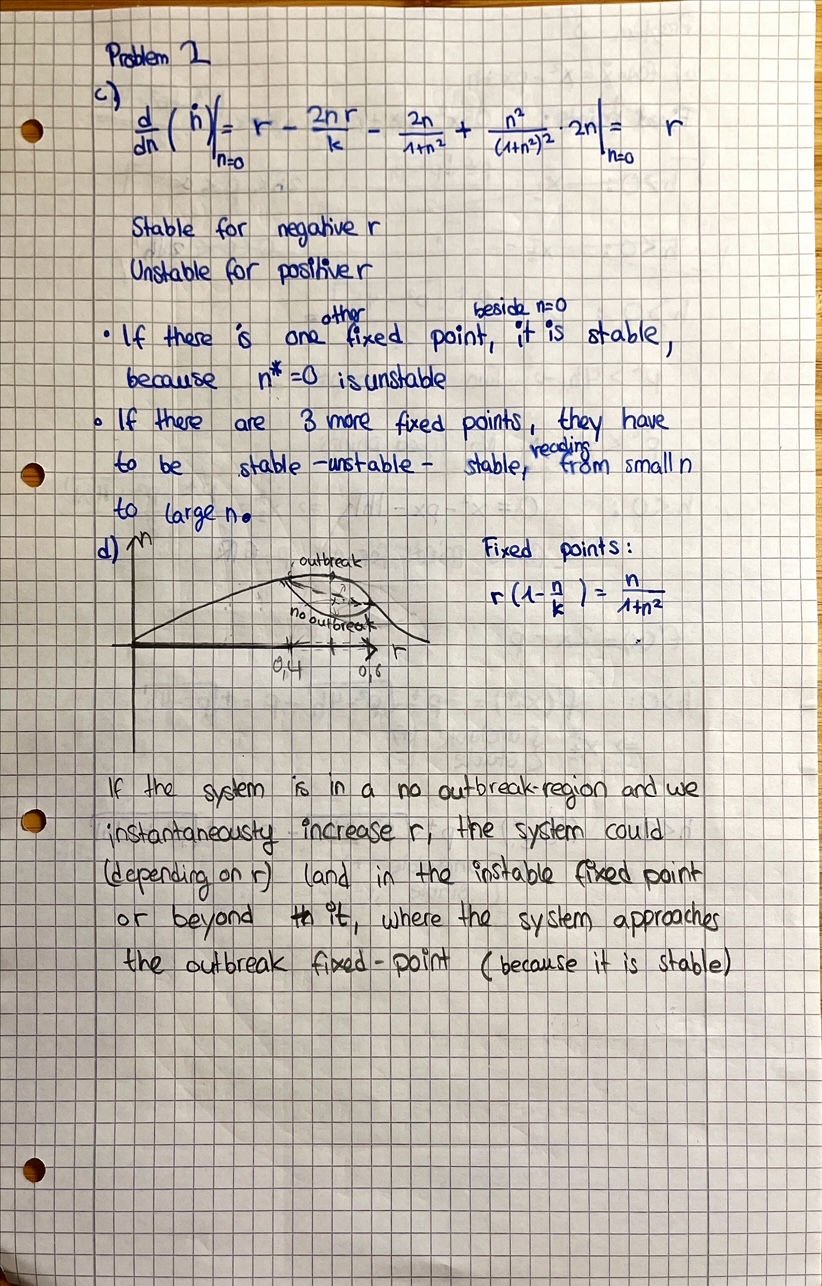 Problem 2
c)
d/dn (ṅ)|n=0 = r - 2nr/k - 2n/1+n² + n²/(1+n²)² · 2n|n=0 = r
Stable for negative r
Unstable for positive r
• If there is one other fixed point, beside n=0 it is stable,
because n* = 0 is unstable
• If there are 3 more fixed points, they have
to be stable - unstable - stable, reading from small n
to large n.
d) n
outbreak
no outbreak
r
0,4
0,6
Fixed points:
r(1-n/k) = n/1+n²
If the system is in a no outbreak-region and we
instantaneously increase r, the system could
(depending on r) land in the instable fixed point
or beyond it, where the system approaches
the outbreak fixed-point (because it is stable)